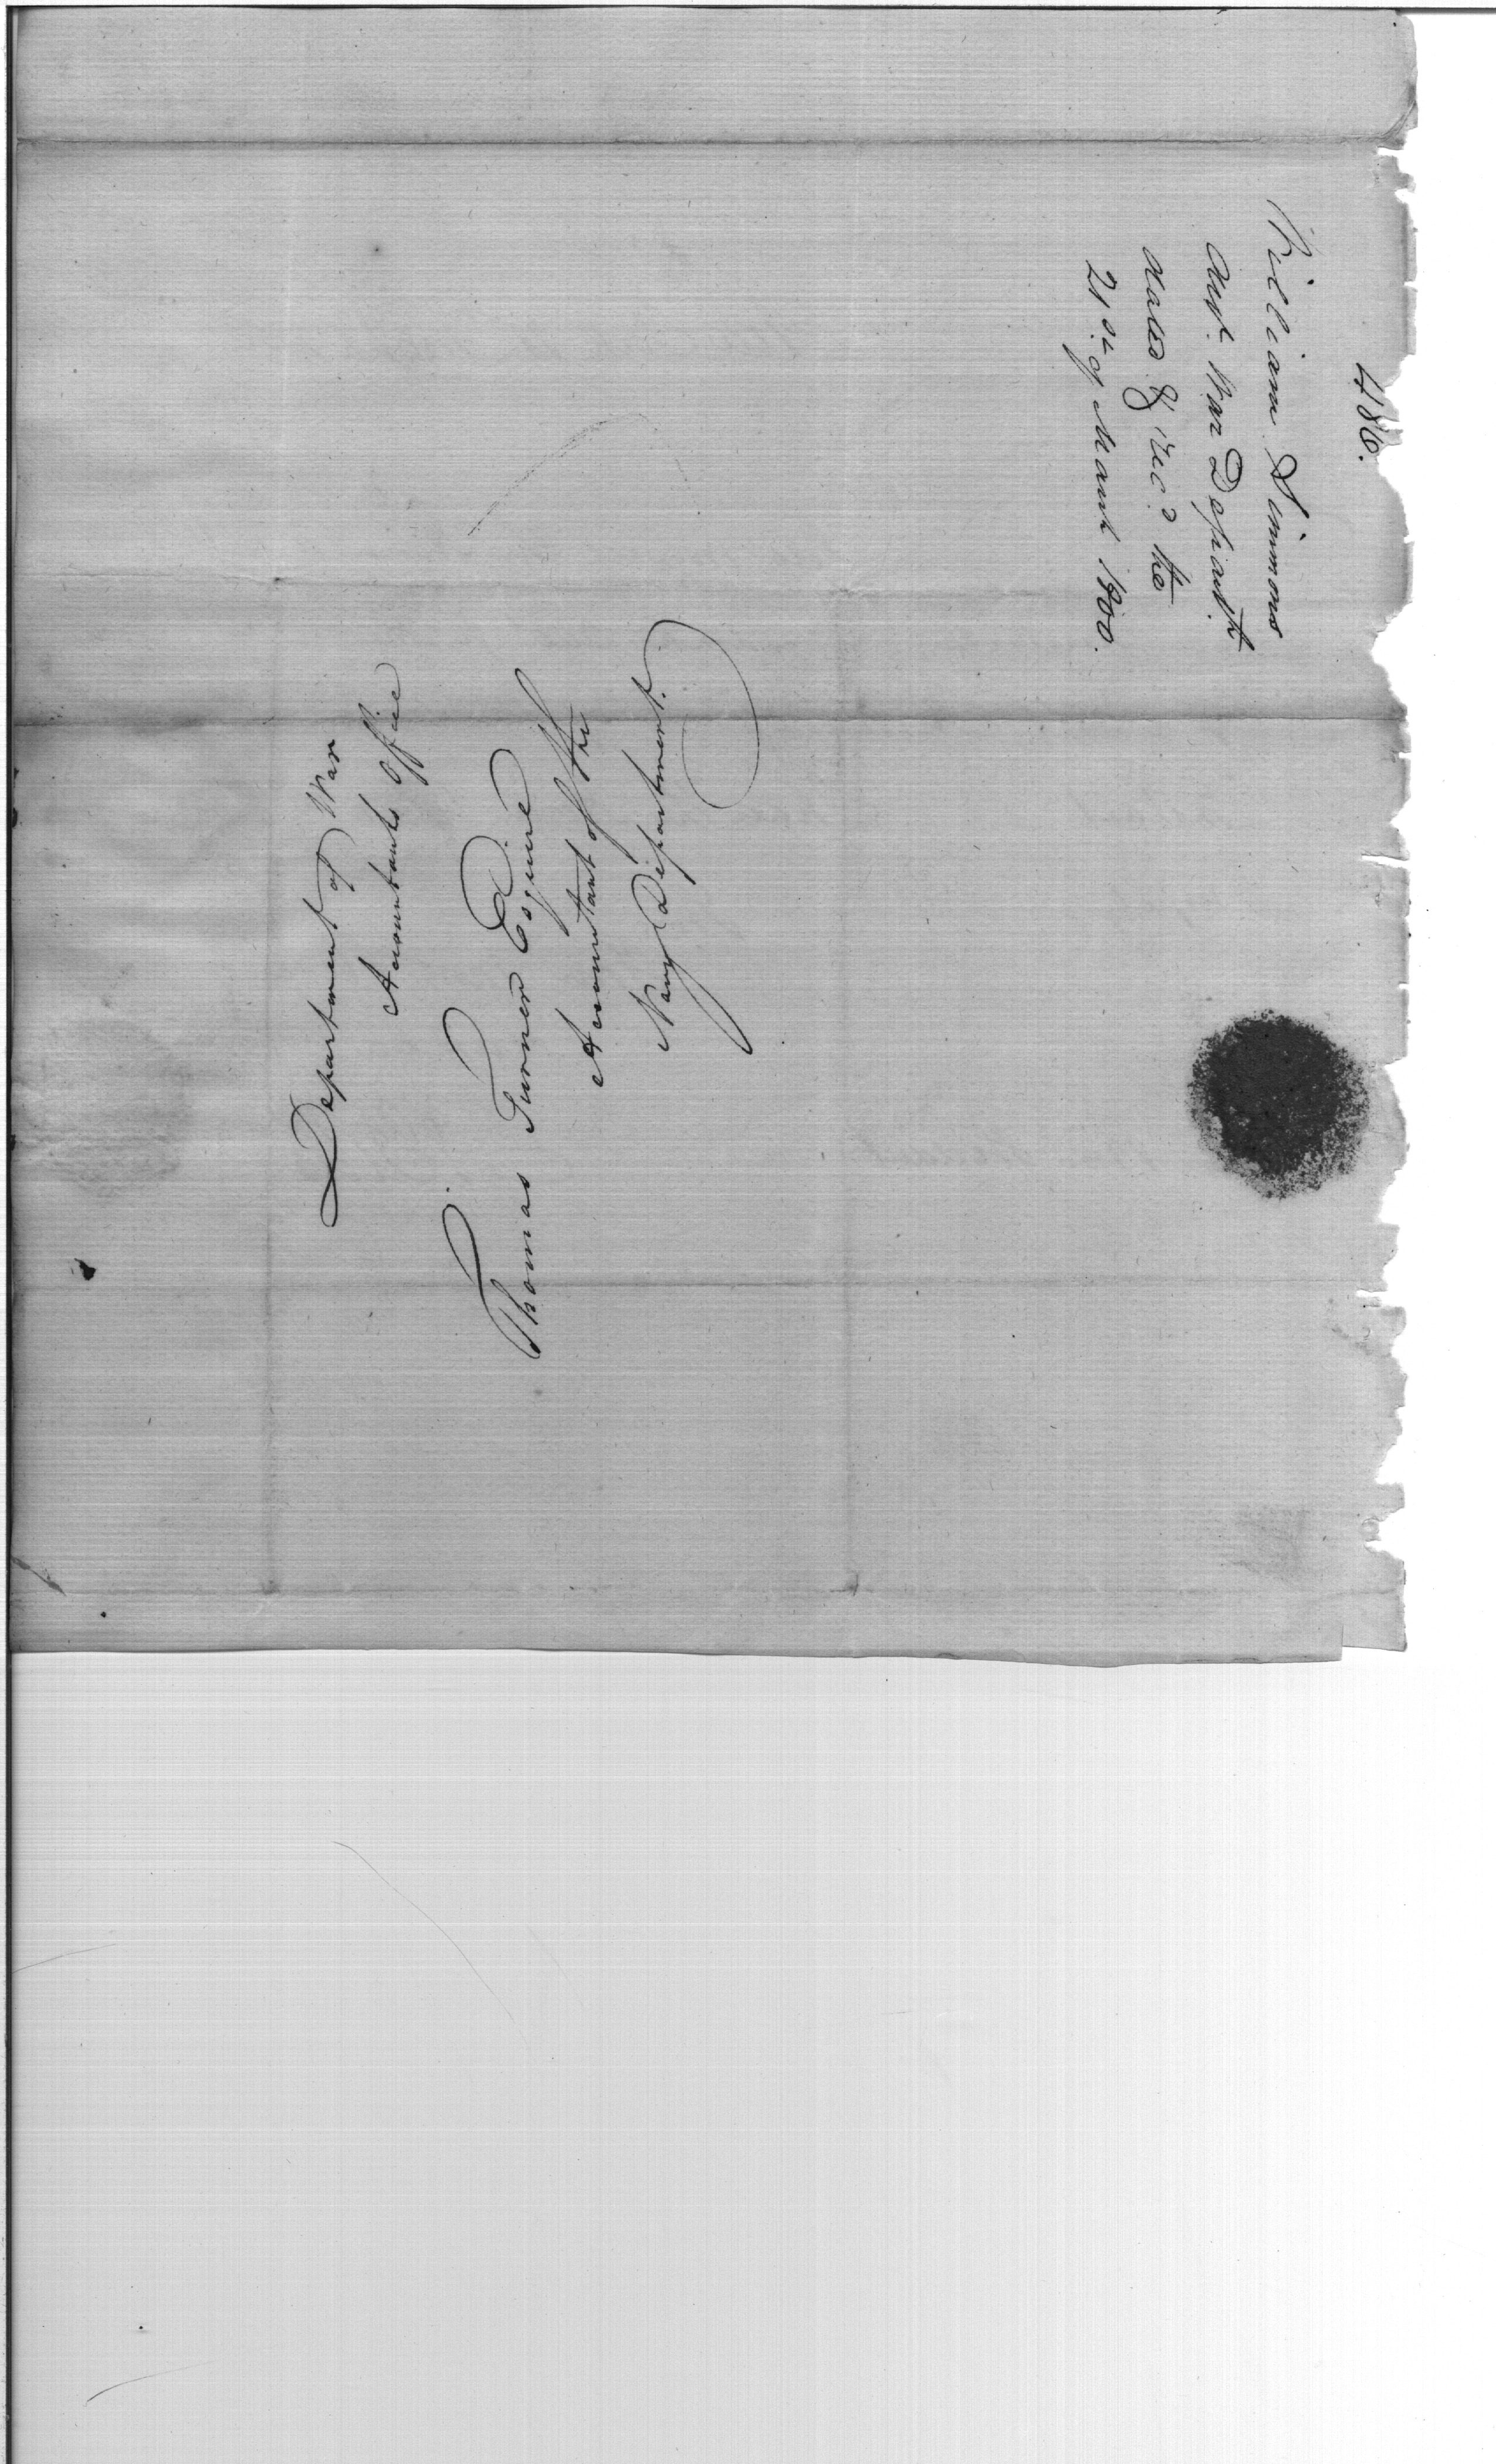 486.
William Simmons
Acct. War Departmt.
dated & rec.d the
21st. of March 1800.
Department of War
Accountants Office
Thomas Turner Esquire
Accountant of the
Navy Department.